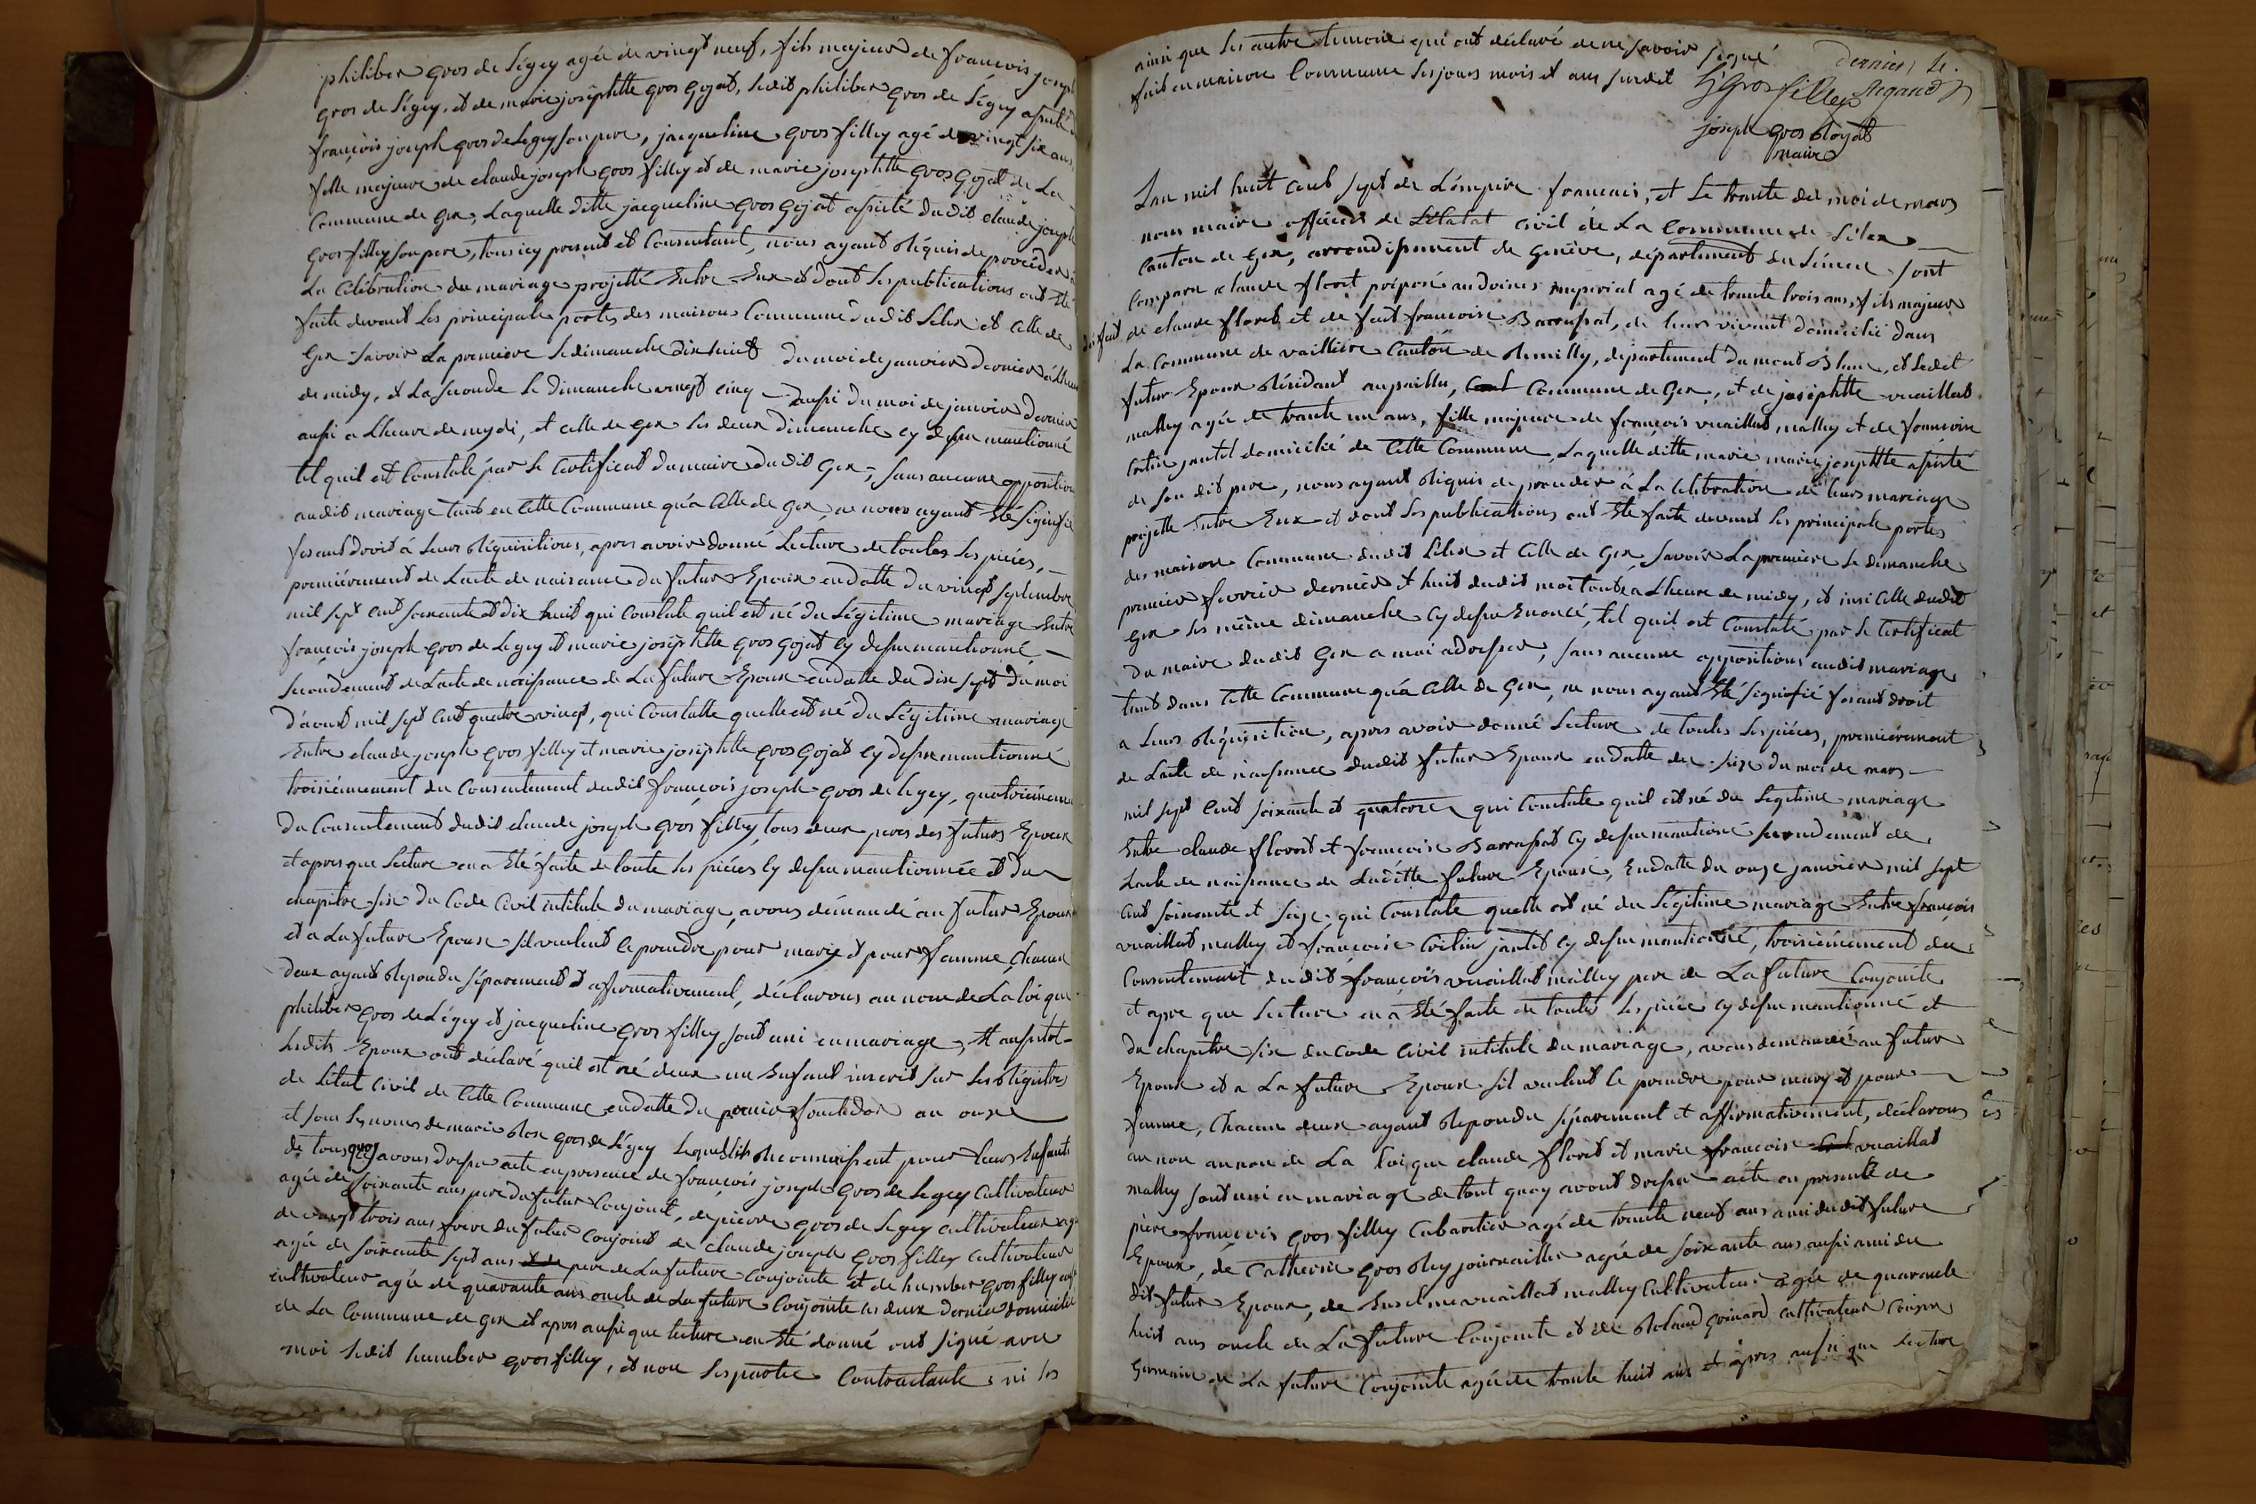 philiber gros de Légey agée de vingt neuf, fils majeur de francois joseph
gros de Légey, et de marie joséphtte gros Gojat, ledit philiber gros de Légey assisté
françois joseph gros de Legey son pere, jacqueline gros filley agé de vingt six ans
fille majeure de claude joseph gros filley et de marie josephtte gros Gojat de La
Commune de Gex, Laquelle ditte jacqueline gros Gojat assisté dudit claude joseph
gros filley son pere, tous icy present et Consentant, nous ayant réquis de proceder à
La Célébration du mariage projetté Entre Eux et dont les publications ont Eté
faite devant Les principale portes des maisons Commune dudit Lelex et Celle de
Gex Savoir La premiere le dimanche dix huit du moi de janvier dernier à l'heure
de midy, et La seconde le dimanche vingt cinq aussi du moi de janvier dernier
aussi a Lheure de mydi, et celle de Gex les deux dimanche cy dessu mantionné
tel quil est Constaté par le Certificat du maire dudit Gex, sans aucune opposition
audit mariage tant en Cette Commune qu'à Celle de Gex, ne nous ayant Eté signifié
fesant droit à Leurs réquisitions, apres avoir donné Lecture de toutes les pieces,
premiérement de Lacte de naisance du futur Epoux en datte du vingt septembre
mil sept cent soixante et dix huit qui Constate quil est né du Légitime mariage Entre
françois joseph gros de Legey et marie joséphtte gros gojat cy dessu mantionné
secondement de Lacte de naissance de La future Epouse en datte du dix sept du moi
d'aout mil sept cent quatre vingt, qui Constatte quelle est né du Légitime mariage
Entre claude joseph gros filley et marie joséphtte gros gojat cy dessu mantionné
troisiémement du Consentement dudit françois joseph gros de legey, quatriémement
du Consentement dudit claude joseph gros filley, tous deux peres des futurs Epoux
et apres que Lecture en a Eté faite de toute les piéces cy dessu mantionnée et du
chapitre six du Code Civil intitulé du mariage, avons démandé au futur Epoux
et a La future Epouse sil veulent ce prendre pour mary et pour femme, Chacun
deux ayant répondu séparement et affirmativement, déclarons au nom de La loi que
philiber gros de Légey et jacqueline gros filley sont uni en mariage, Et aussitot
Lesdits Epoux ont déclaré quil est né deux un Enfant inscrit sur les régistres
de Létat Civil de Cette Commune en datte du premier fructidor an onze
et sous les noms de marie rose gros de Légey Lequel ils réconnoissent pour leurs Enfants
de tous quoi avons dressé acte en presence de françois joseph gros de Legey Cultivateur
agée de soixante ans pere du futur Conjoint, de pierre gros de Legey cultivateur agé
de vingt trois ans frere du futur Conjoint de claude joseph gros filley cultivateur
agée de soixante sept ans pere de La future Conjointe et de humber gros filley aussi
cultivateur agée de quarante ans oncle de La future Conjointe les deux dernier domicilié
de La Commune de Gex et apres aussi que lecture en Eté donné ont signé avec
moi ledit humber gros filley, et non les partie Contractante ni les
ainsi que les autre temoin qui ont déclaré de ne savoir signé
fait en maison Commune les jours mois et ans susdit
dernier
h Gros filley Regard
joseph gros royat
maire
Lan mil huit cent sept de Lémpire francais, et le trante du moi de mars
nous maire officier de Létatat civil de La Commune de Lélex
Canton de Gex, arrondissement de Genève, départiment du Léman, sont
Comparu claude floret préposé au doines imperial agé de trante trois ans, fils majeur
de claude floret et de fut francoise Barrussat, de leurs vivant domicilié dans
La Commune de vailliere Canton de Rumilly, départiment du mont Blanc, et ledit
futur Epoux résidant au pailly, Commune de Gex, et de joséphtte vuaillat
malley agée de trante un ans, fille majeure de françois vuaillat malley et de francoise
Cotin jantil domicilié de Cette Commune, Laquelle ditte marie marie josephtte assisté
de son dit pere, nous ayant réquis de proceder à La Célébration de leurs mariage
projetté Entre Eux et dont les publications ont Eté faite devant les principale portes
des maison Commune dudit Lélex et Celle de Gex, Savoir La premiere le dimanche
premier fevrier dernier et huit dudit moi toute a Lheure de midy, et insi Celle dudit
Gex les même dimanche cy dessu Enoncé, tel quil est Constaté par le Certificat
du maire dudit Gex a moi adresser, sans aucune oppositions audit mariage
tant dans Cette Commune qu'à Celle de Gex, ne nous ayant Eté signifié fesant droit
a Leurs réquisition, apres avoir donné Lecture de toutes les piéces, premiérement
de Lacte de naissance dudit futur Epoux en datte du six du moi de mars
mil sept cent soixante et quatorze qui Constate quil est né du Legitime mariage
Entre claude floret et francoise Barrussat cy dessu mantioné secondement de
Lacte de naissance de Laditte future Epouse, En datte du onze janvier mil sept
cent soixante et seize qui Constate quelle est né du Légitime mariage Entre françois
vuaillat malley et francoise Cotin jantil cy dessu mantionné, troisiémement du
Consentement dudit françois vuaillat malley pere de La future Conjointe
et apre que Lecture en a Eté faite de toutes les piéce cy dessu mantionné et
du chapitre six du Code Civil intitulé du mariage, avons demandé au futur
Epoux et a La future Epouse sil veulent ce prendre pour mary et pour
femme, Chacun deux ayant répondu séparement et affirmativement, déclarons
au nom au nom de La loi que claude floret et marie francoise vuaillat
malley sont uni en mariage de tout quoy avons dressé acte en presence de
piere francois gros filley Cabartier agé de trante neuf ans ami dudit future
Epoux, de Catherin gros rey journallier agée de soixante ans aussi ami du
dit futur Epoux, de Enselme vuaillat malley Cultivateur agée de quarante
huit ans oncle de La future Conjointe et de Roland goinard cultivateur Cousin
Germain de La future Conjointe agée de trante huit ans et apres aussi que lecture